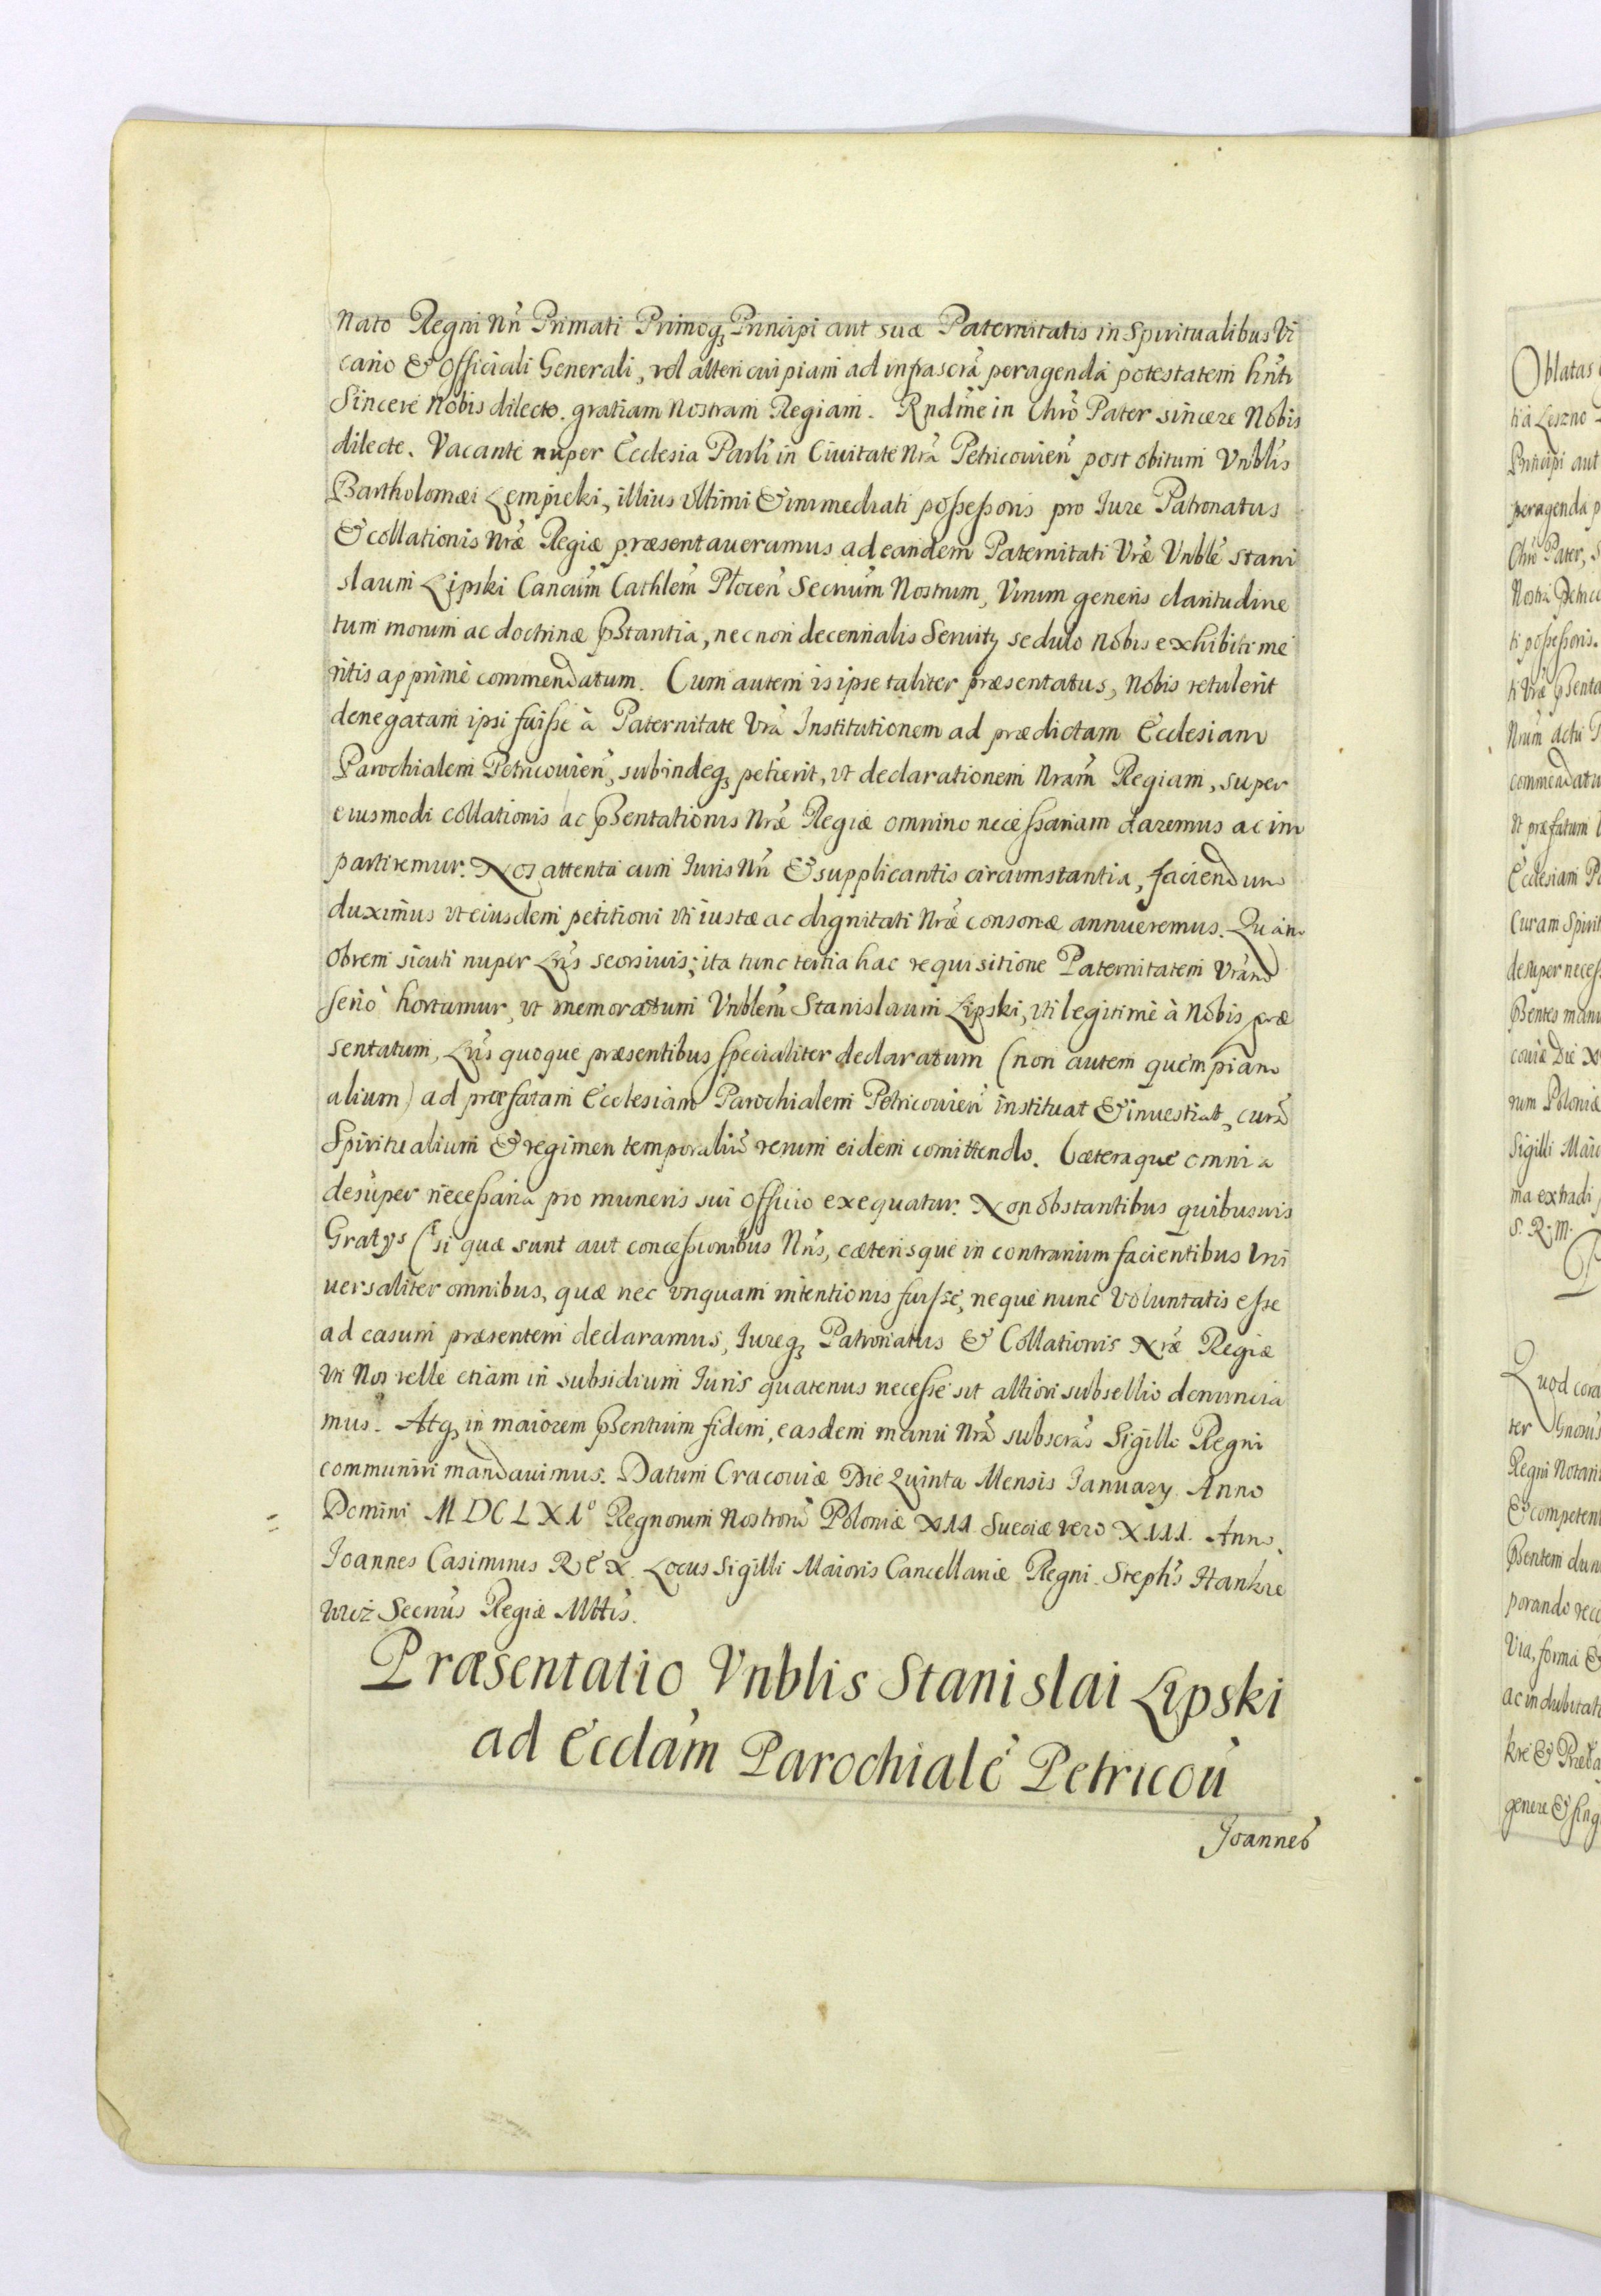 Nato Regni Nri Primati Primoq₃ Principi aut suæ Paternitatis in Spiritualibus Vi
cario & Officiali Generali, vel alteri cuipiam ad infrascrã peragendã potestatem hñti
Sincere Nobis dilecto. gratiam Nostram Regiam. Rndime in Chrõ Pater sincere Nobis
dilecte. Vacante nuper Ecclesia Parli in Ciuitate Nrã Petricouien̄ post obitum Vnblis
Bartholomæi Lempicki, illius vltimi & immediati possessoris pro Jure Patronatus
& collationis Nræ Regiæ præsentaueramus ad eandem Paternitati Vræ Vnblẽ Stani
slaum Lipski Canc̃um Cathlẽm Płocen̄ Secr̃ium Nostrum, Virum generis claritudine
tum morum ac doctrinæ pstantia, nec non decennalis Seruity sedulo Nobis exhibiti me
ritis apprimè commendatum. Cum autem is ipse taliter præsentatus, Nobis retulerit
denegatam ipsi fuisse à Paternitate Vrã Institutionem ad prædictam Ecclesiam
Parochialem Petricouien̄, subindeq₃ petierit, vt declarationem Nrãm Regiam, super
eiusmodi collationis ac psentationis Nræ Regiæ omnino necessariam daremus ac im
partiremur. Nos attenta cum Iuris Nri & supplicantis circumstantia, faciendum
duximus vt eiusdem petitioni vti iustæ ac dignitati Nræ consonæ annueremus. Quam
obrem sicuti nuper Lr̃is seorsiuis; ita tunc tertia hac requisitione Paternitatem Vram
seriò hortamur, vt memoratum Vnblẽm Stanislaum Lipski, vti legitimè à Nobis præ
sentatum, Lr̃is quoque præsentibus specialiter declaratum (non autem quempiam
alium) ad præfatam Ecclesiam Parochialem Petricouien̄ instituat & inuestiat, curã
Spiritualium & regimen temporaliũ rerum eidem comittendo. Cæteraque omnia
desuper necessaria pro muneris sui officio exequatur. Non obstantibus quibusuis
Gratys (si quæ sunt aut concessionibus Nr̃is, cæterisque in contrarium facientibus Vni
uersaliter omnibus, quæ nec vnquam intentionis fuisse, neque nunc Voluntatis esse
ad casum præsentem declaramus, Jureq₃ Patronatus & Collationis Nræ Regiæ
Vti Nos velle etiam in subsidium Iuris quatenus necesse sit altiori subsellio denuncia
mus. Atq₃ in maiorem psentium fidem, easdem manu Nrã subscrãs Sigillo Regni
communiri mandauimus. Datum Cracouiæ Die Quinta Mensis January Anno
Domini M DC L X 1º Regnorum Nostrorũ Poloniæ X11 Sueciæ vero X111. Anno.
Joannes Casimirus REX. Locus Sigilli Maioris Cancellariæ Regni. Stephs Hankie
wicz Secr̃ius Regiæ Mttis.
Præsentatio Vnblis Stanislai Lipski
ad Eccłam Parochialẽ Petricoũ
Joannes
Oblatas
ti à Leszno
Principi aut
peragenda p
Chrõ Pater, S
Nostrã Petrico
ti possessoris.
ti Vræ psenta
Nrũm actu
commendatu
Vt præfatum
Ecclesiam Pa
Curam Spirit
desuper necess
psentes manu
couiæ Die X
rum Poloniæ
Sigilli Maio
ma extradi
S. R. M.
Quod cora
ter Gnosus
Regni Notari
& competen
psentem dun
porando reco
Via, forma &
ac indubitati
kre & Præta
genere & sing